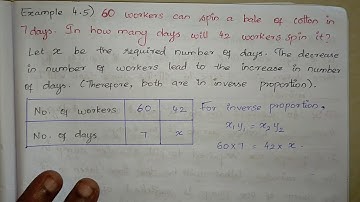 Example 4.5) 60 workers can spin a bale of cotton in
7 days. In how many days will 42 workers spin it?
Let x be the required number of days. The decrease
in number of workers lead to the increase in number
of days. (Therefore, both are in inverse proportion).
No. of workers 60 42
No. of days 7 x
For inverse proportion,
x₁y₁ = x₂y₂
60 x 7 = 42 x x.